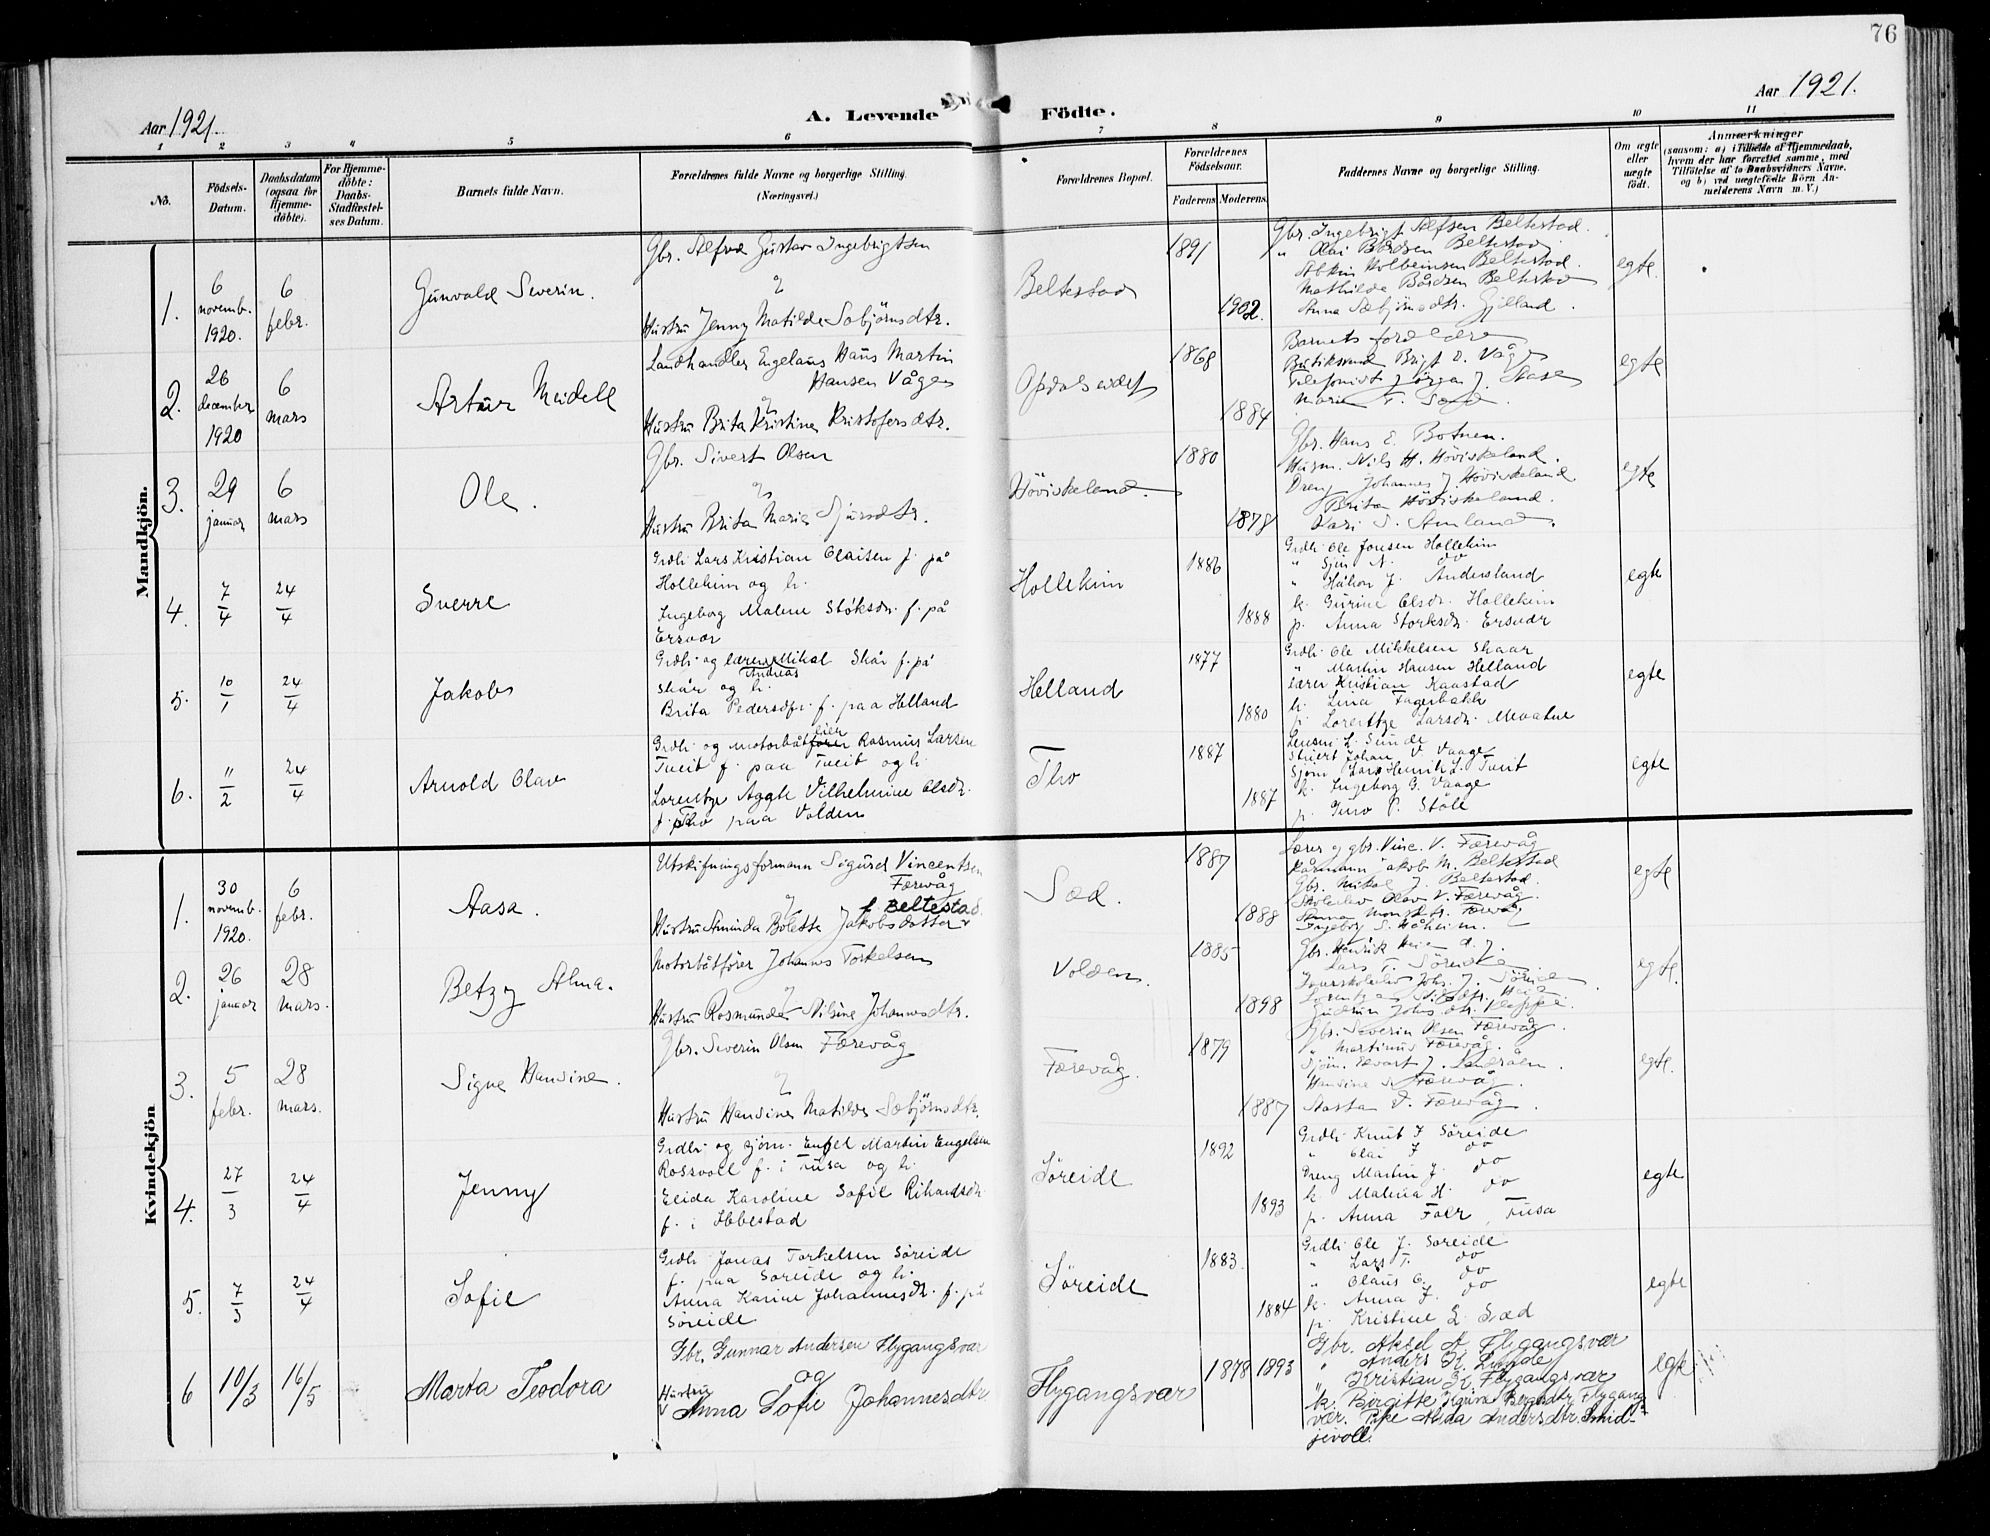 76
Aar 1921.
A. Levende Födte.
Aar 1921.
1 2 3 4 5 6 7 8 9 10 11
No.
Födsels-Datum.
Daabsdatum (ogsaa for Hjemme-döbte).
For Hjemme-döbte: Daabs-Stadfæstel-ses Datum.
Barnets fulde Navn.
Forældrenes fulde Navne og borgerlige Stilling.
(Næringsvei.)
Forældrenes Bopæl.
Forældrenes Födselsaar.
Faderens. Moderens.
Faddernes Navne og borgerlige Stilling.
Om ægte eller uægte födt.
Anmærkninger
(saasom: a) i Tilfælde af Hjemmedaab,
hvem der har forrettet samme, med
Tilföielse af to Daabsvidners Navne,
og b) ved uægtefödte Börn An-
melderens Navn m. V.)
Mandkjön.
1.
6 novemb. 1920.
6 febr.
Gunvald Severin.
Gbr. Alfred Gustav Ingebrigtsen
og
Hustru Jenny Matilde Sæbjörnsdtr.
Beltestad
1891
1902.
Gbr. Ingebrigt Alfsen Beltestad.
" Olai Bårdsen Beltestad
Holbeinsen Beltestad.
Mathilde Bårdsen Beltestad
Anna Sæbjörnsdtr. Gjelland.
egte.
2.
26 december 1920
6 mars
Artur Meidell
Landhandler Engelaus Hans Martin
Hansen Våge
og
Hustru Brita Kristine Kristofersdtr.
Opdalseidet
1868
1884
Barnets forældre
Butiksmand Brigt O. Våge
Telefonist Jörgen J. Aase
Marie T. Sæd.
egte
3.
29 januar
6 mars
Ole.
Gbr. Sivert Olsen
og
Hustru Brita Marie Sjursdtr.
Höviskeland.
1880
1878
Gbr. Hans E. Botnen.
Husm. Nils H. Höviskeland.
Dreng Johannes J. Höviskeland
Brita Höviskeland.
Kari S. Amland.
egte
4.
7/4
24/4
Sverre
Grdbr. Lars Kristian Olaisen f. på
Hollekim og h.
Ingeborg Malene Störksdr. f. på
Ersvær
Hollekim
1886
1888
Grdbr. Ole Jonsen Hollekim
" Sjur N. do
" Håkon J. Andersland
k. Gurine Olsdr. Hollekim
p. Anna Storksdr. Ersvær
egte
5.
10/1
24/4
Jakob
Grdbr. og lærer Mikal Skår f. på
Andreas
Skår og h.
Brita Pedersdr. f. paa Helland
Helland
1877
1880
Grdbr. Ole Mikkelsen Skaar
" Martin Hansen Helland
Lærer Kristian Kaastad
k. Lina Fagerbakk
p. Lorentze Larsdr. Mevatne
egte
6.
11/2
24/4
Arnold Olav
Grdbr. og motorbåtfører eier Rasmus Larsen
Tveit f. paa Tveit og h.
Lorentze Aggte Vilhelmine Olsdr.
f. Tho paa Volden
Tho
1887
1887
Lensm. L. Sunde
Stuert Johan V. Vaage
Sjøm. Lars Henrik L. Tveit
k. Ingeborg G. Vaage
p. P. Ståll
egte
Kvindekjön
1.
30 novemb. 1920.
6 febr.
Aasa.
Utskifningsformann Sigurd Vincentsen
Færevåg
og f. Beltestad.
Hustru Amunda Bolette Jakobsdatter
Sæd.
1887
1888
Lærer og gbr. Vinc. V. Færevåg
Kårmann Jakob M. Beltestad
Gbr. Mikal J. Beltestad.
Skoleelev Olav V. Færevåg
Anna Monsdtr. Færevåg
Ingeborg S. Håheim.
egte
2.
26 januar
28 mars.
Betzy Alma.
Motorbåtfører Johannes Torkelsen
og
Hustru Rosmunda Nilsine Johannesdtr.
Volden.
1885
1898
Gbr. Henrik
Lars T. Söreide
Johs. J. Söreide
Gudrun Johsdtr.
egte.
3.
5 febr.
28 mars.
Signe Hansine.
Gbr. Severin Olsen Færevåg
og
Hustru Hansine Matilde Sæbjörnsdtr.
Færevåg.
1879
1887
Gbr. Severin Olsen Færevåg.
" Martinus Færevåg.
Sjöm. Sevart J.
Hansine S. Færevåg.
Aasta V. Færevåg.
egte.
4.
27/3
24/4
Jenny
Grdbr. og sjøm. Engel Martin Engelsen
Rossvoll f. i Fusa og h.
Elida Karoline Sofie Rikardsdr.
f. i Ibbestad
Söreide
1892
1893
Grdbr. Knut J. Söreide
" Olai J. do
Dreng Martin J. do
k. Malena H. do
p. Anna Foer, Fusa
egte
5.
7/3
24/4
Sofie
Grdbr. Jonas Torkelsen Söreide
f. paa Söreide og h.
Anna Karine Johannesdr. f. på
Söreide
Söreide
1883
1884
Grdbr. Ole J. Söreide
" Lars T. do
" Claus O. do
k. Anna J. do
p. Kristine L. Sæd
egte
6
10/3
16/5
Marta Teodora
Gbr. Gunnar Andersen Flygangsvær
og
Hustru Anna Sofie Johannesdtr.
Flygangsvær
1878 1893
Gbr. Aksel A. Flygangsvær
" Anders K. Lunde
" Kristian K. Flygangsvær
k. Birgitte Karine Flygang
vær. Pike Alida Andersdtr. Smid-
jevoll.
egte